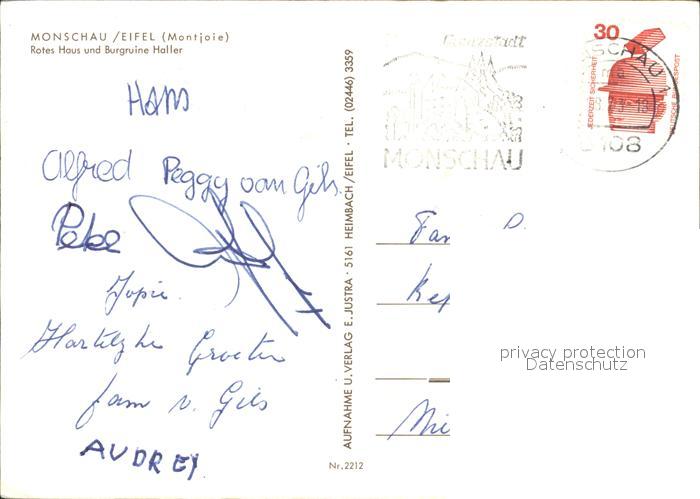 MONSCHAU /EIFEL (Montjoie)
Rotes Haus und Burgruine Haller
HANS
Alfred Peggy van Gils.
Peke
Jopie.
Hartelyke Groeten
fam v. Gils
AUDREY
AUFNAHME U. VERLAG E. JUSTRA · 5161 HEIMBACH /EIFEL · TEL. (02446) 3359
Nr. 2212
Grenzstadt
MONSCHAU
30
JEDERZEIT SICHERHEIT
DEUTSCHE BUNDESPOST
SCHAU
5108
Fa
D.
Ke
privacy protection
Datenschutz